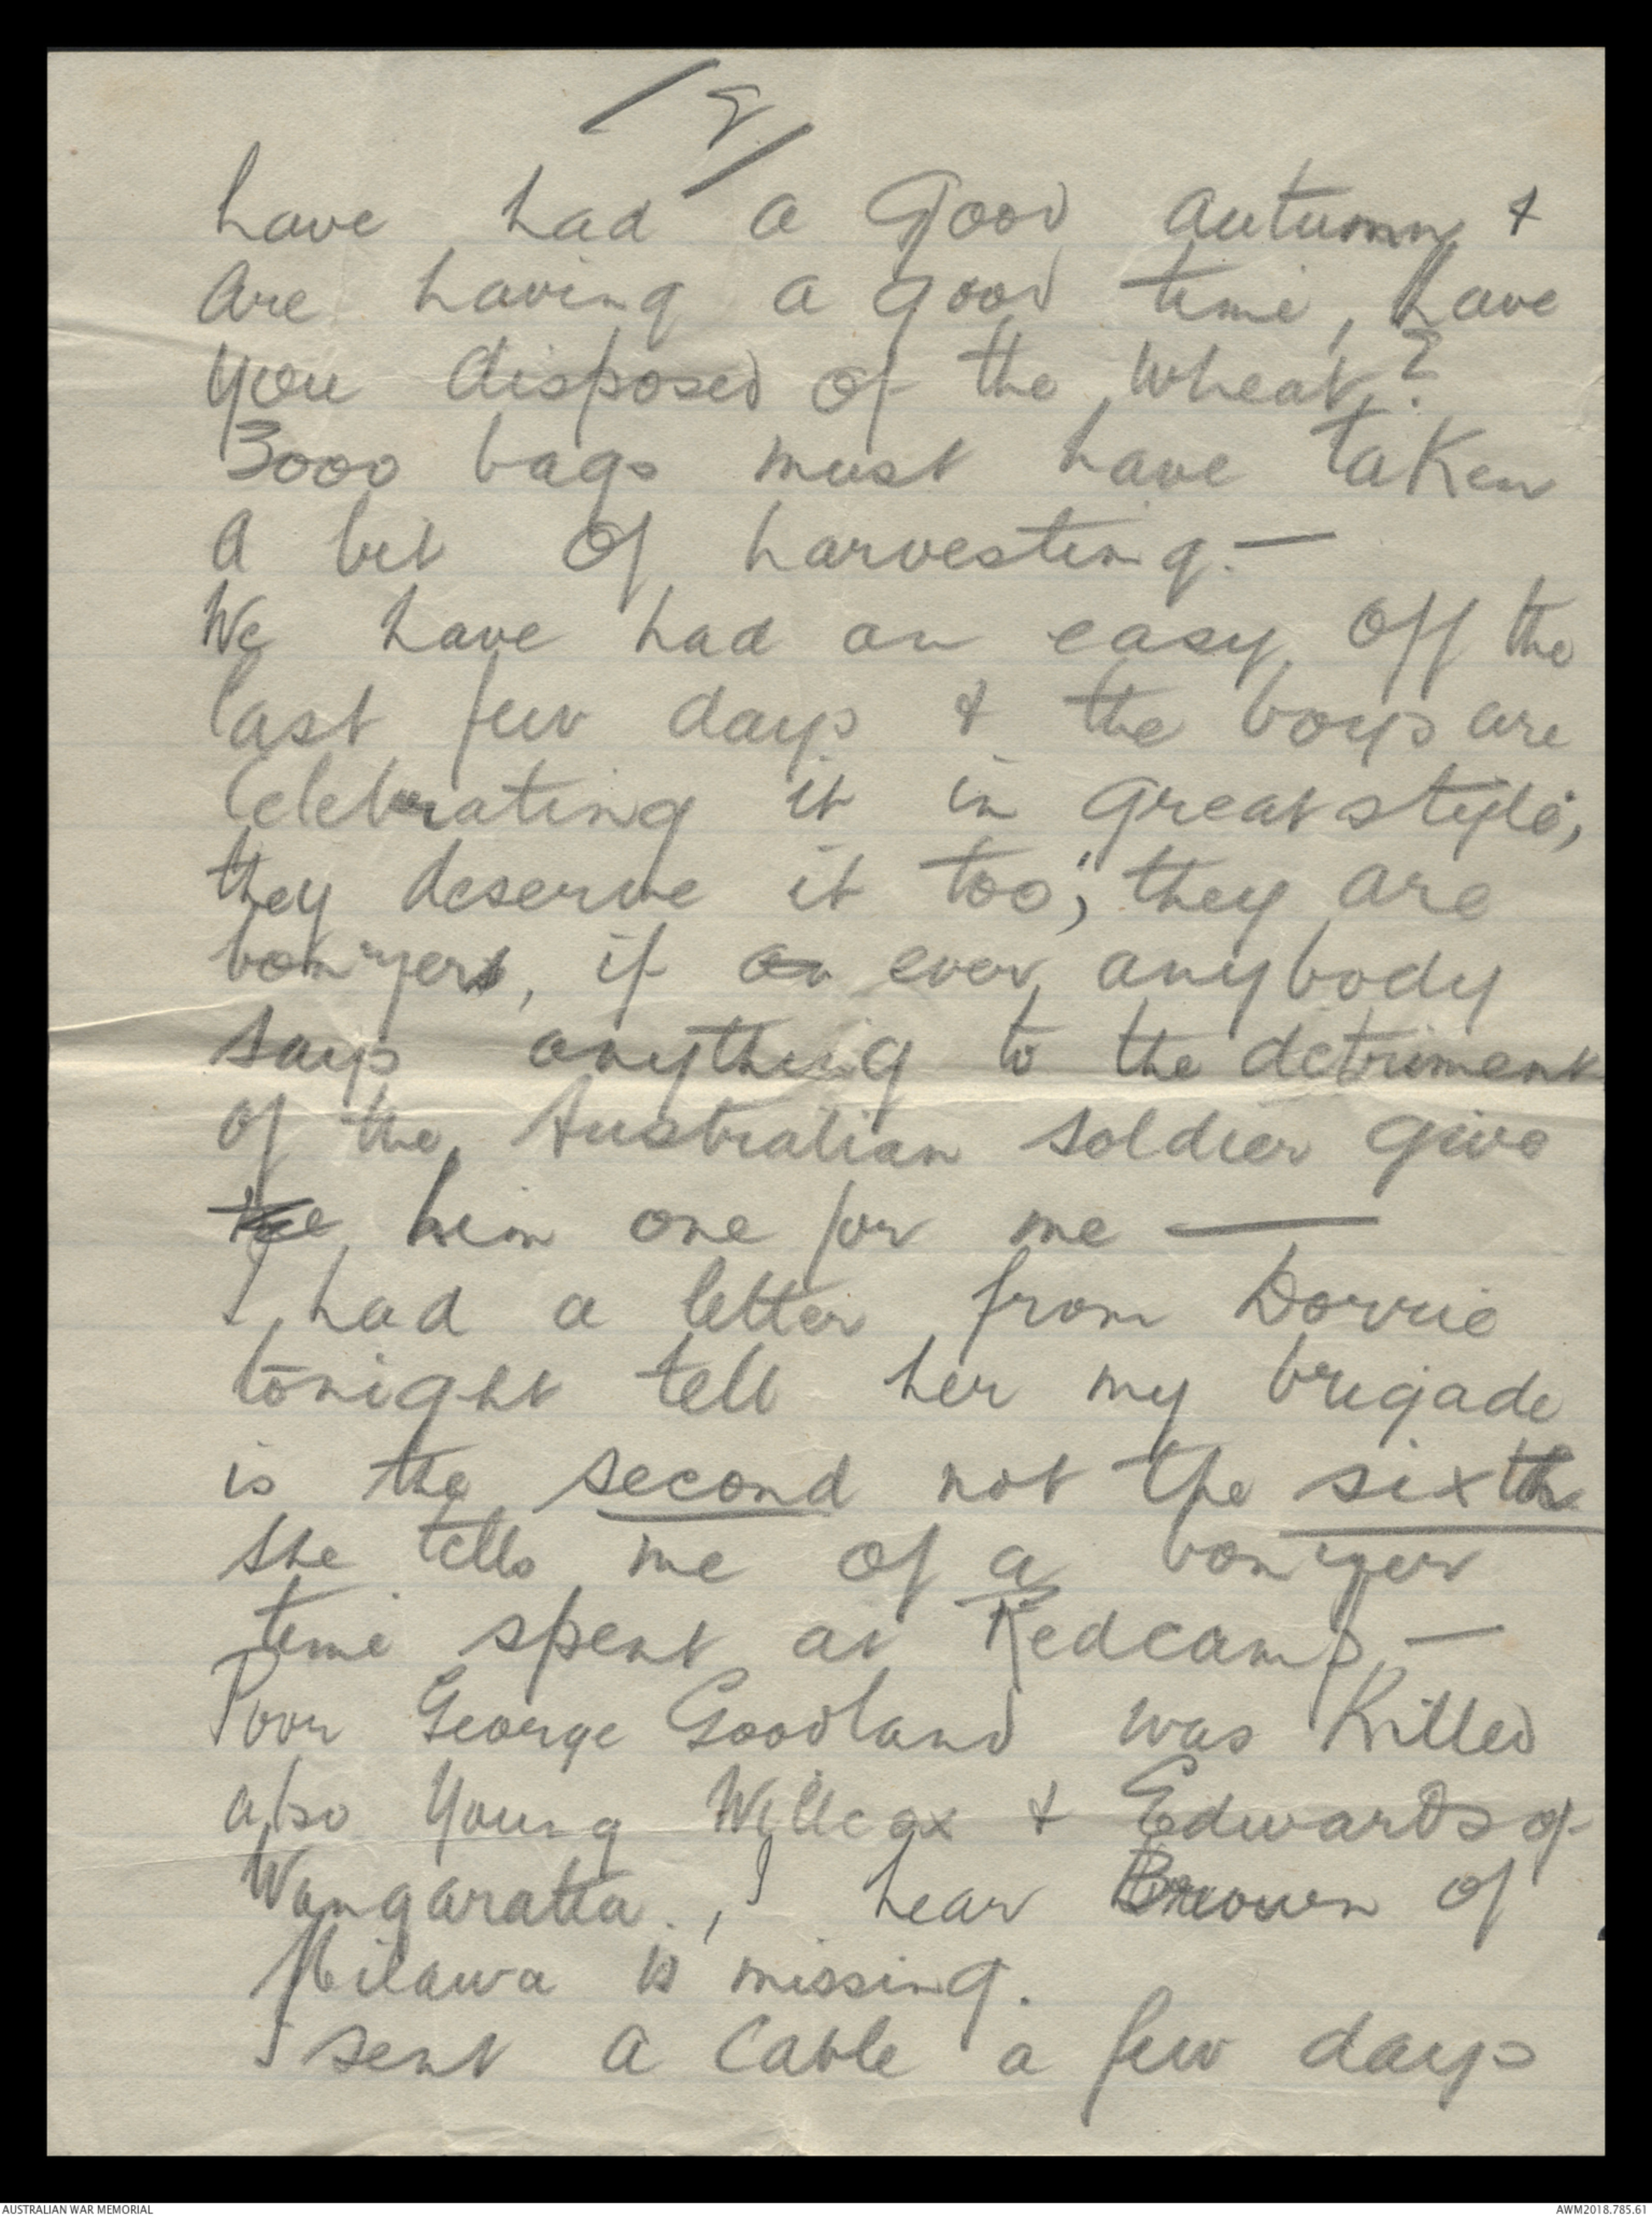 /8/
have had a good autumn &
are having a good time, have
you disposed of the wheat?
3000 bags must have taken
a bit of harvesting. —
We have had an easy off the
last few days & the boys are
celebrating it in great style;
they deserve it too; they are
bonyers, if an ever anybody
says anything to the detriment
of the Australian soldier give
the him one for me —
I had a letter from Dorrie
tonight tell her my brigade
is the second not the sixth
she tells me of a bonyer
time spent at Redcamp —
Poor George Goodland was killed
also young Willcox & Edwards of
Wangaratta., I hear Brown of
Milawa is missing.
I sent a cable a few days
AUSTRALIAN WAR MEMORIAL
AWM2018.785.61